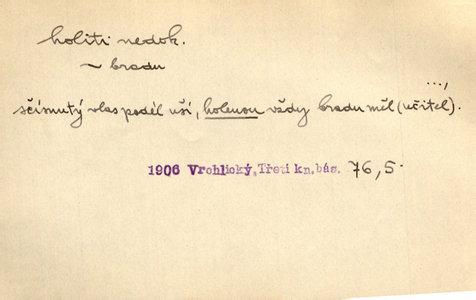 holiti nedok.
~ bradu
...,
sčísnutý vlas podél uší, holenou vždy bradu měl (učitel).
1906 Vrchlický, Třetí kn. bás. 76,5.